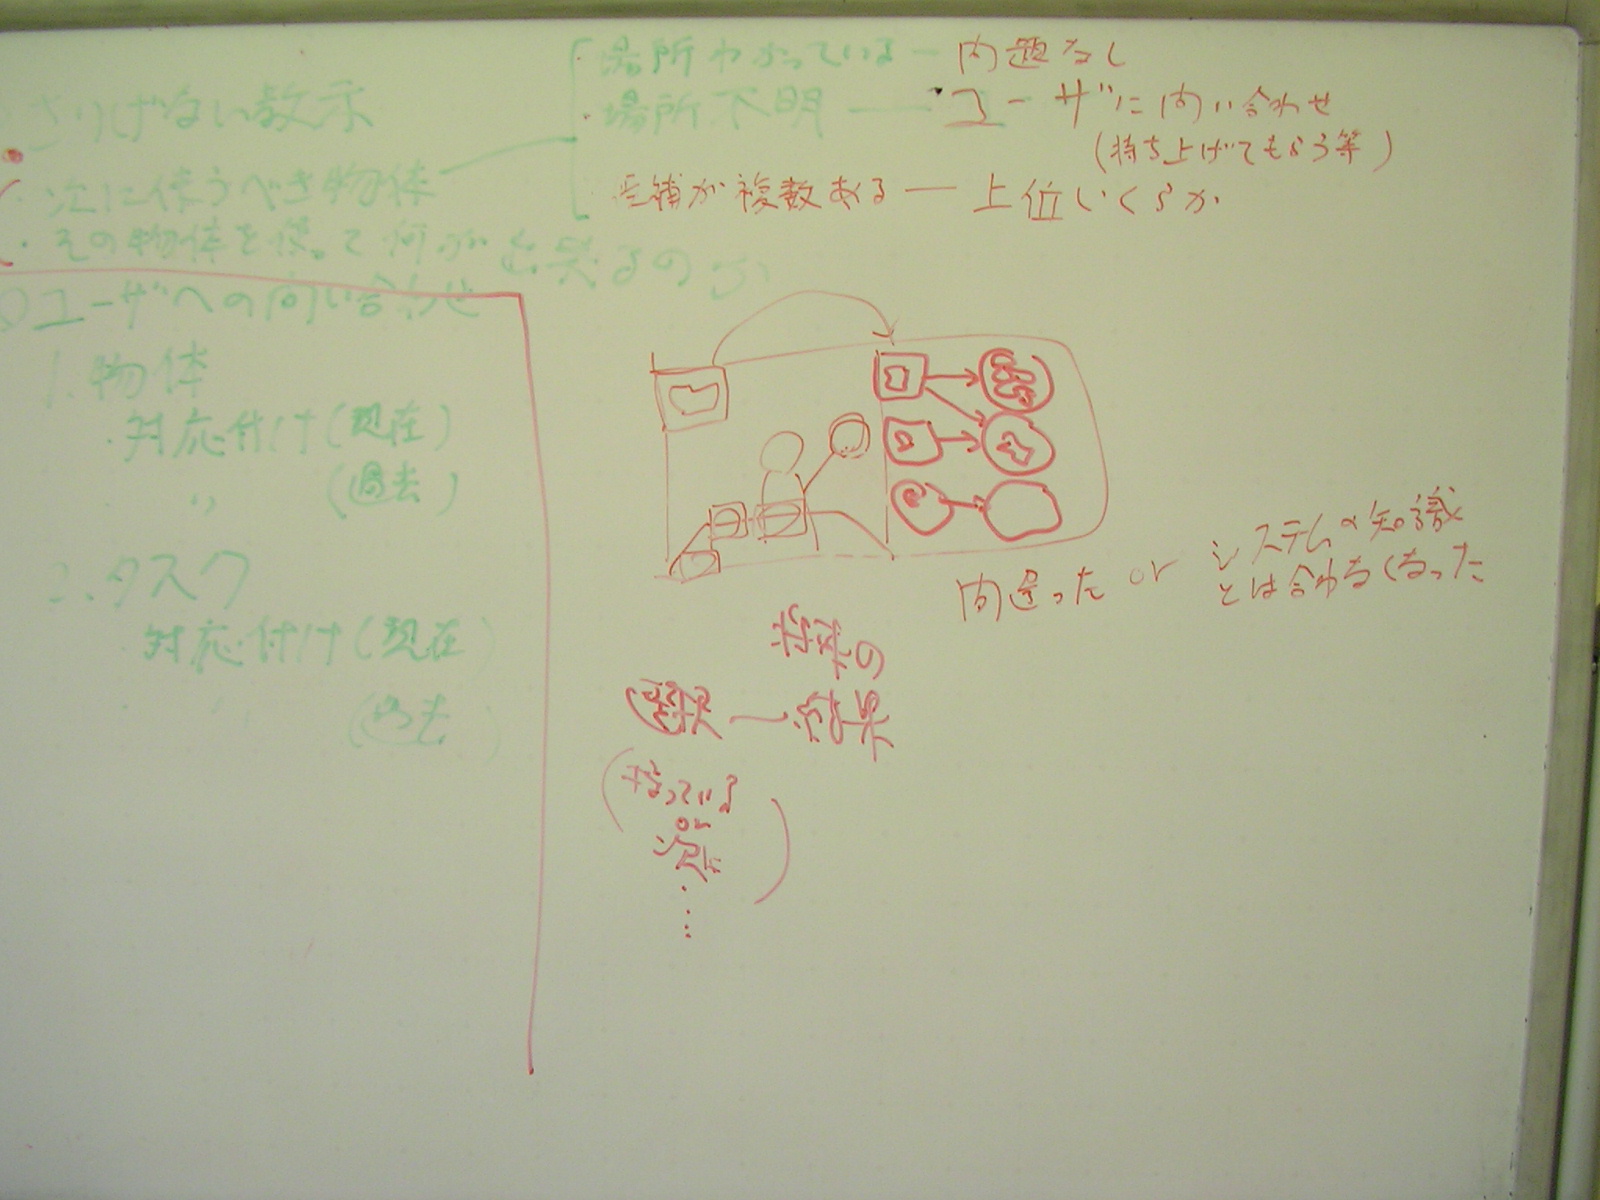 さりげない教示
・次に使うべき物体
・その物体を使って何が出来るのか
・場所わかっている ー 問題なし
・場所不明 ー ・ユーザに問い合わせ
(持ち上げてもらう等)
候補が複数ある ー 上位いくらか
◎ユーザへの問い合わせ
1. 物体
・対応付け(現在)
〃 (過去)
2. タスク
・対応付け(現在)
(過去)
間違った or システムの知識
とは合わなくなった
将来の
選択 ー 結果
っている
or
次に
⋮